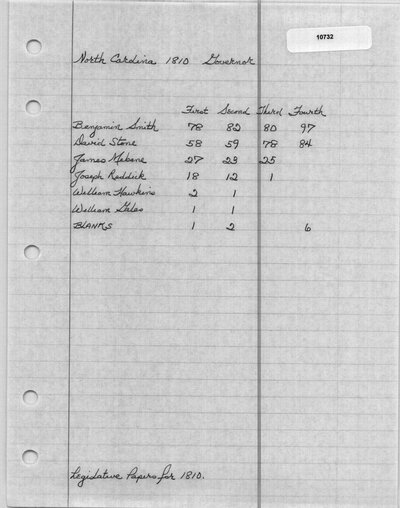 10732
North Carolina 1810 Governor
First Second Third Fourth
Benjamin Smith 78 82 80 97
David Stone 58 59 78 84
James Mebene 27 23 25
Joseph Reddick 18 12 1
William Hawkins 2 1
William Giles 1 1
BLANKS 1 2 6
Legislative Papers for 1810.